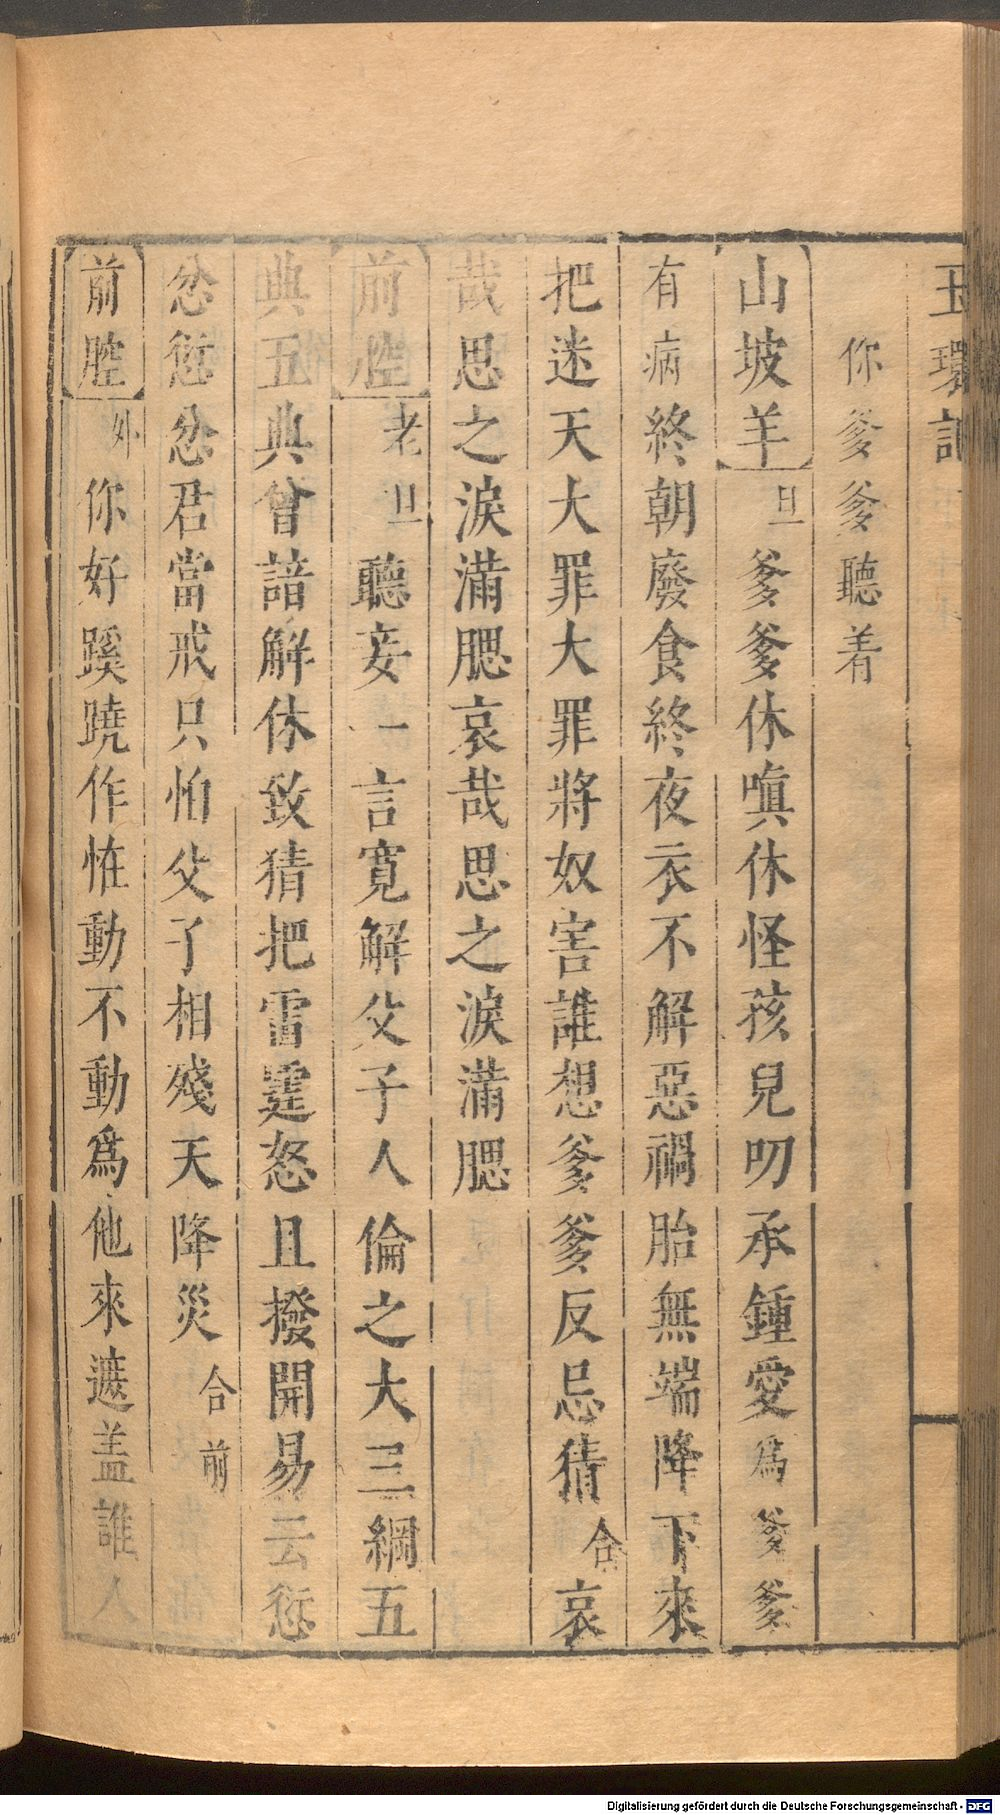 玉環記
你爹爹聽着
山坡羊 旦 爹爹休嗔休怪孩兒叨承鍾愛爲爹爹
有病終朝廢食終夜衣不解惡禍胎無端降下來
把迷天大罪大罪將奴害誰想爹爹反忌猜 合 哀
哉思之淚滿腮哀哉思之淚滿腮
前腔 老旦 聽妾一言寬解父子人倫之大三綱五
典五典曾諳解休致猜把雷霆怒且撥開易云愆
忿愆忿君當戒只怕父了相殘天降災 合前
前腔 外 你好蹊蹺作恠動不動爲他來遮盖誰人
Digitalisierung gefördert durch die Deutsche Forschungsgemeinschaft - DFG